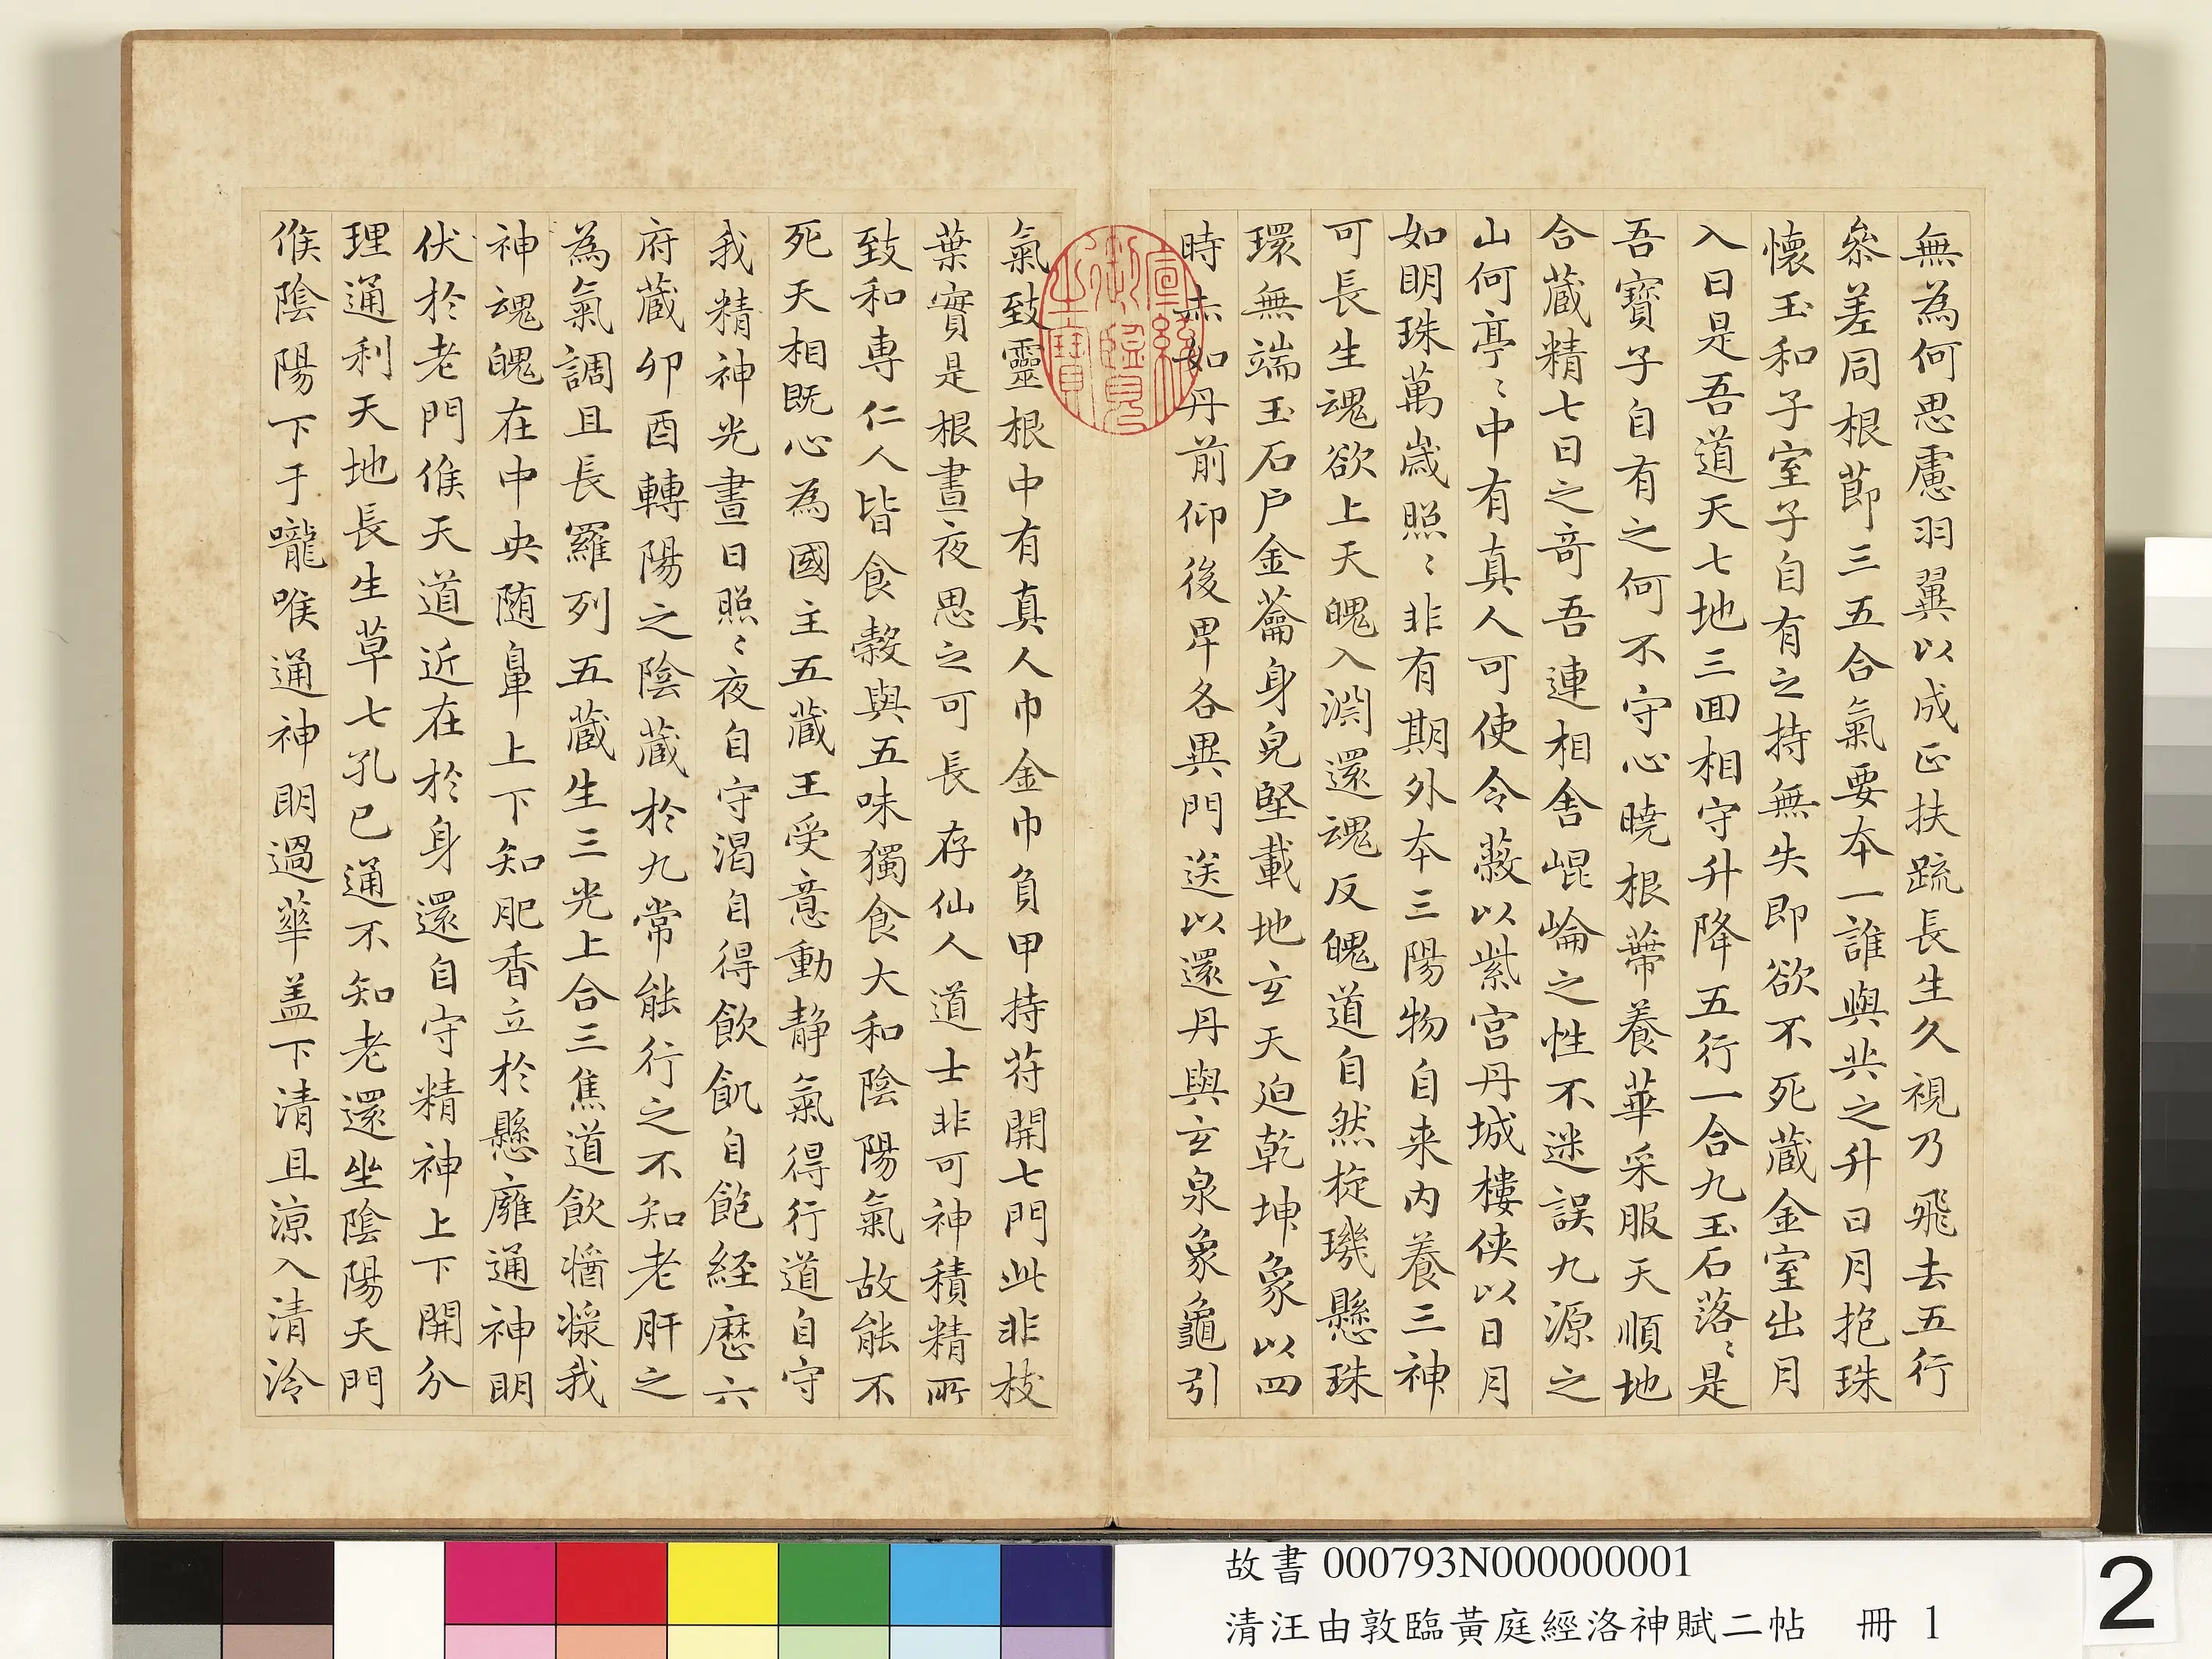 無為何思慮羽翼以成正扶疏長生久視乃飛去五行
參差同根節三五合氣要本一誰與共之升日月抱珠
懷玉和子室子自有之持無失即欲不死藏金室出月
入日是吾道天七地三回相守升降五行一合九玉石落〻是
吾寶子自有之何不守心曉根蔕養華采服天順地
合藏精七日之奇吾連相舍崐崘之性不迷誤九源之
山何亭〻中有真人可使令蔽以紫宮丹城樓俠以日月
如明珠萬歲照〻非有期外本三陽物自来内養三神
可長生魂欲上天魄入淵還魂反魄道自然璇璣懸珠
環無端玉石戶金籥身皃堅載地玄天迫乾坤象以四
時赤如丹前仰後卑各異門送以還丹與玄泉象龜引
氣致靈根中有真人巾金巾負甲持苻開七門此非枝
葉實是根晝夜思之可長存仙人道士非可神積精所
致和專仁人皆食糓與五味獨食大和陰陽氣故能不
死天相既心為國主五藏王受意動静氣得行道自守
我精神光晝日照〻夜自守渴自得飲飢自飽經歷六
府藏卯酉轉陽之陰藏於九常能行之不知老肝之
為氣調且長羅列五藏生三光上合三焦道飲醬漿我
神魂魄在中央随鼻上下知肥香立於懸廱通神明
伏於老門候天道近在於身還自守精神上下開分
理通利天地長生草七孔已通不知老還坐陰陽天門
候陰陽下于嚨喉通神明過華盖下清且涼入清泠
宣統御覽之寶
故書 000793N000000001
清汪由敦臨黃庭經洛神賦二帖　冊 1
2